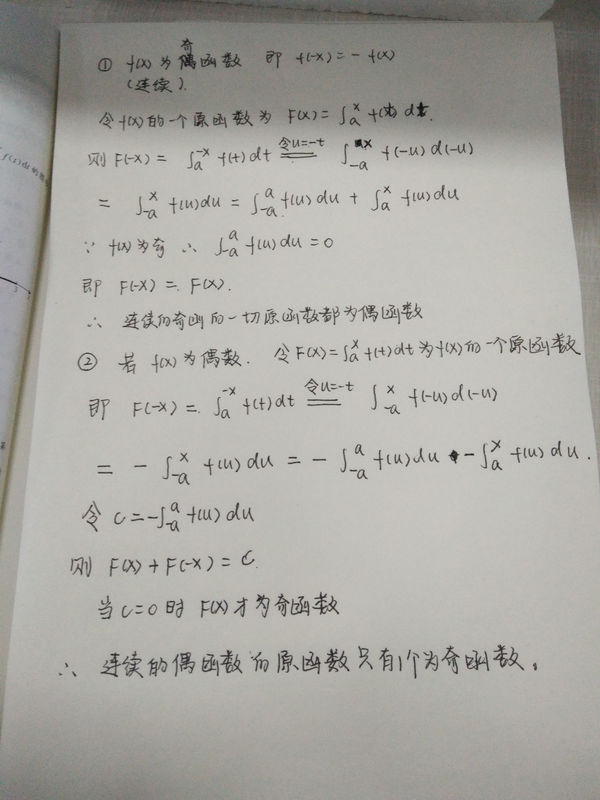 ① f(x)为奇偶函数 即 f(-x)=-f(x)
(连续).
令f(x)的一个原函数为 F(x)=∫_a^x f(t)dt.
则 F(-x)= ∫_a^{-x} f(t)dt 令u=-t ∫_{-a}^x f(-u)d(-u)
= ∫_{-a}^x f(u)du = ∫_{-a}^a f(u)du + ∫_a^x f(u)du
∵ f(x)为奇 ∴ ∫_{-a}^a f(u)du=0
即 F(-x)=F(x).
∴ 连续的奇函的一切原函数都为偶函数
② 若 f(x)为偶数. 令F(x)=∫_a^x f(t)dt为f(x)的一个原函数
即 F(-x)= ∫_a^{-x} f(t)dt 令u=-t ∫_{-a}^x f(-u)d(-u)
= -∫_{-a}^x f(u)du = -∫_{-a}^a f(u)du -∫_a^x f(u)du.
令 C=-∫_{-a}^a f(u)du
则 F(x)+F(-x)=C.
当C=0时 F(x)才为奇函数
∴ 连续的偶函数的原函数只有1个为奇函数。